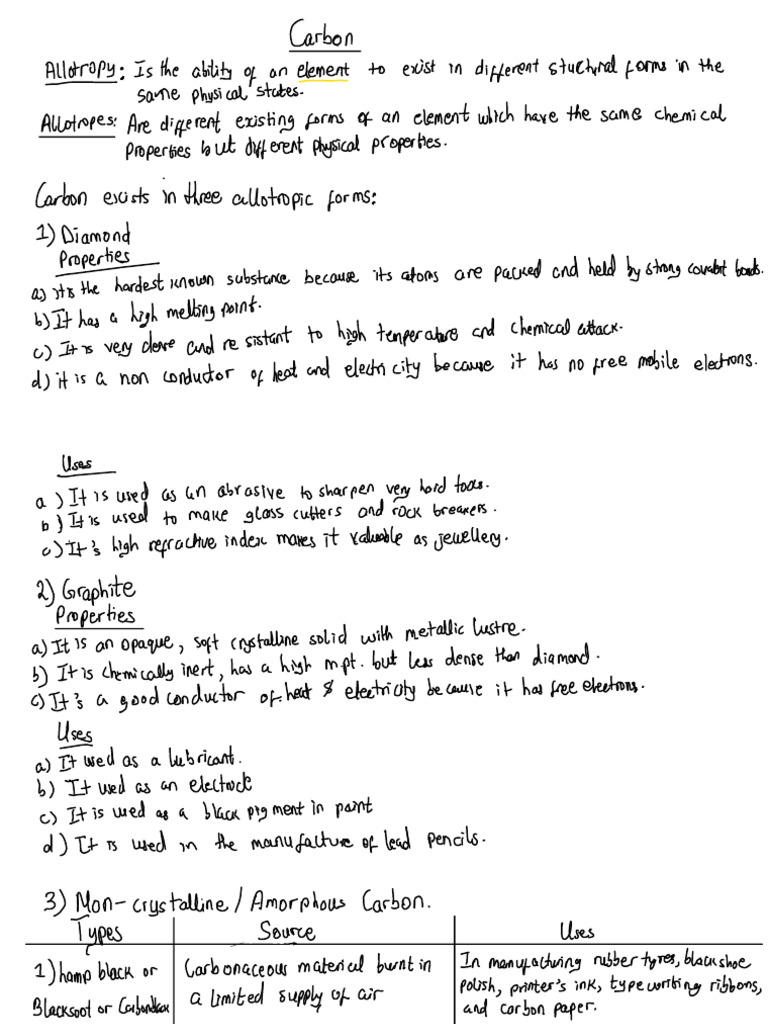 Carbon
Allotropy: Is the ability of an element to exist in different stuctural forms in the
same physical states.
Allotropes: Are different existing forms of an element which have the same chemical
Properties but different physical properties.
Carbon exists in three allotropic forms:
1) Diamond
Properties
a) its the hardest known substance because its atoms are packed and held by strong covalent bonds.
b) It has a high melting point.
c) It is very dense and resistant to high temperature and chemical attack.
d) it is a non conductor of heat and electricity because it has no free mobile electrons.
Uses
a) It is used as an abrasive to sharpen very hard tools.
b) It is used to make glass cutters and rock breakers.
c) It's high refractive index makes it valuable as jewellery.
2) Graphite
Properties
a) It is an opaque, soft crystalline solid with metallic lustre.
b) It is chemically inert, has a high mpt. but less dense than diamond.
c) It's a good conductor of heat & electricity because it has free electrons.
Uses
a) It used as a lubricant.
b) It used as an electrode
c) It is used as a black pigment in paint
d) It is used in the manufacture of lead pencils.
3) Non-crystalline / Amorphous Carbon.
Types Source Uses
1) Lamp black or Carbonaceous material burnt in In manufacturing rubber tyres, black shoe
Blacksoot or a limited supply of air polish, printer's ink, type writing ribbons,
and carbon paper.